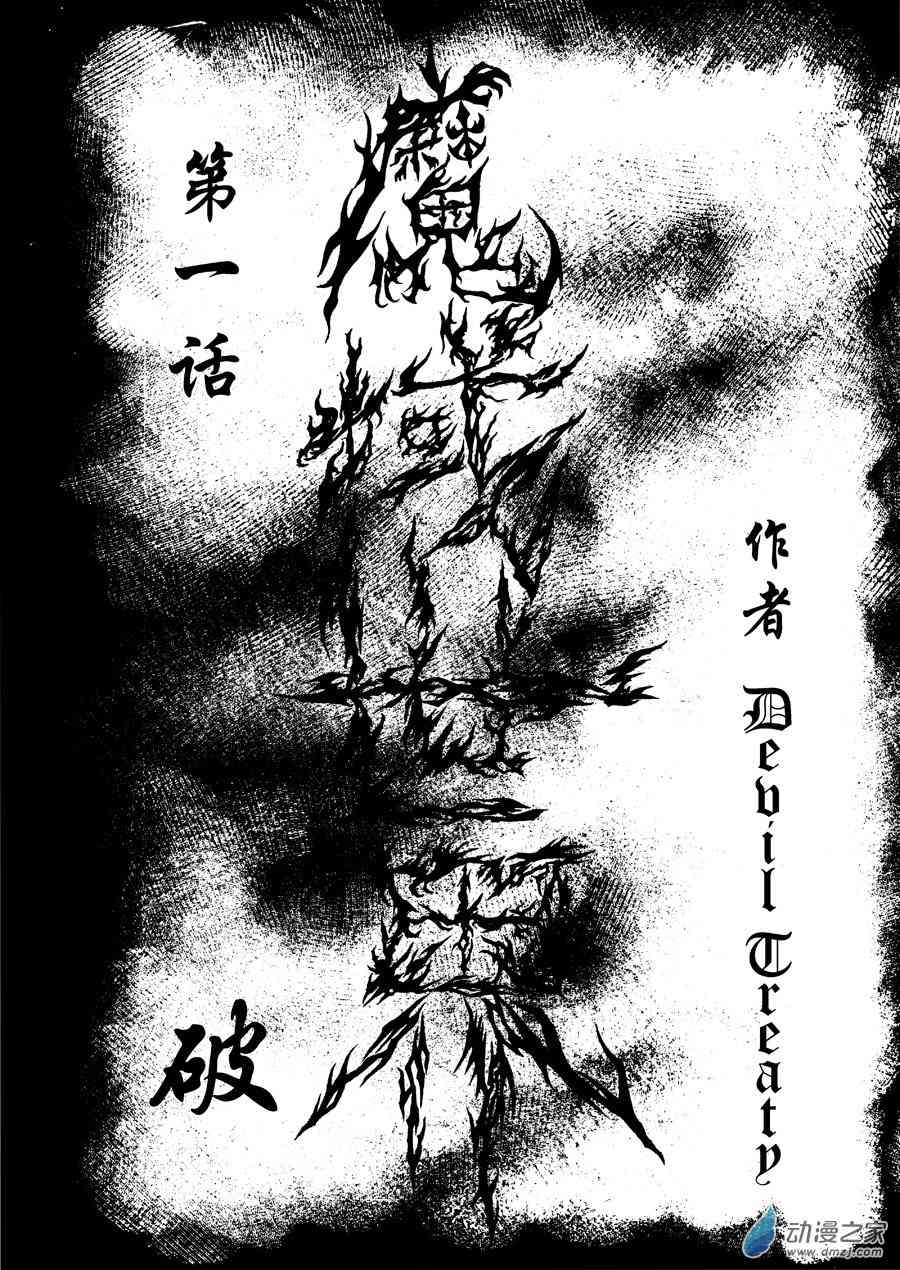 第一话
魔
世界
破
作者 Devil Treaty
动漫之家
www.dmzj.com